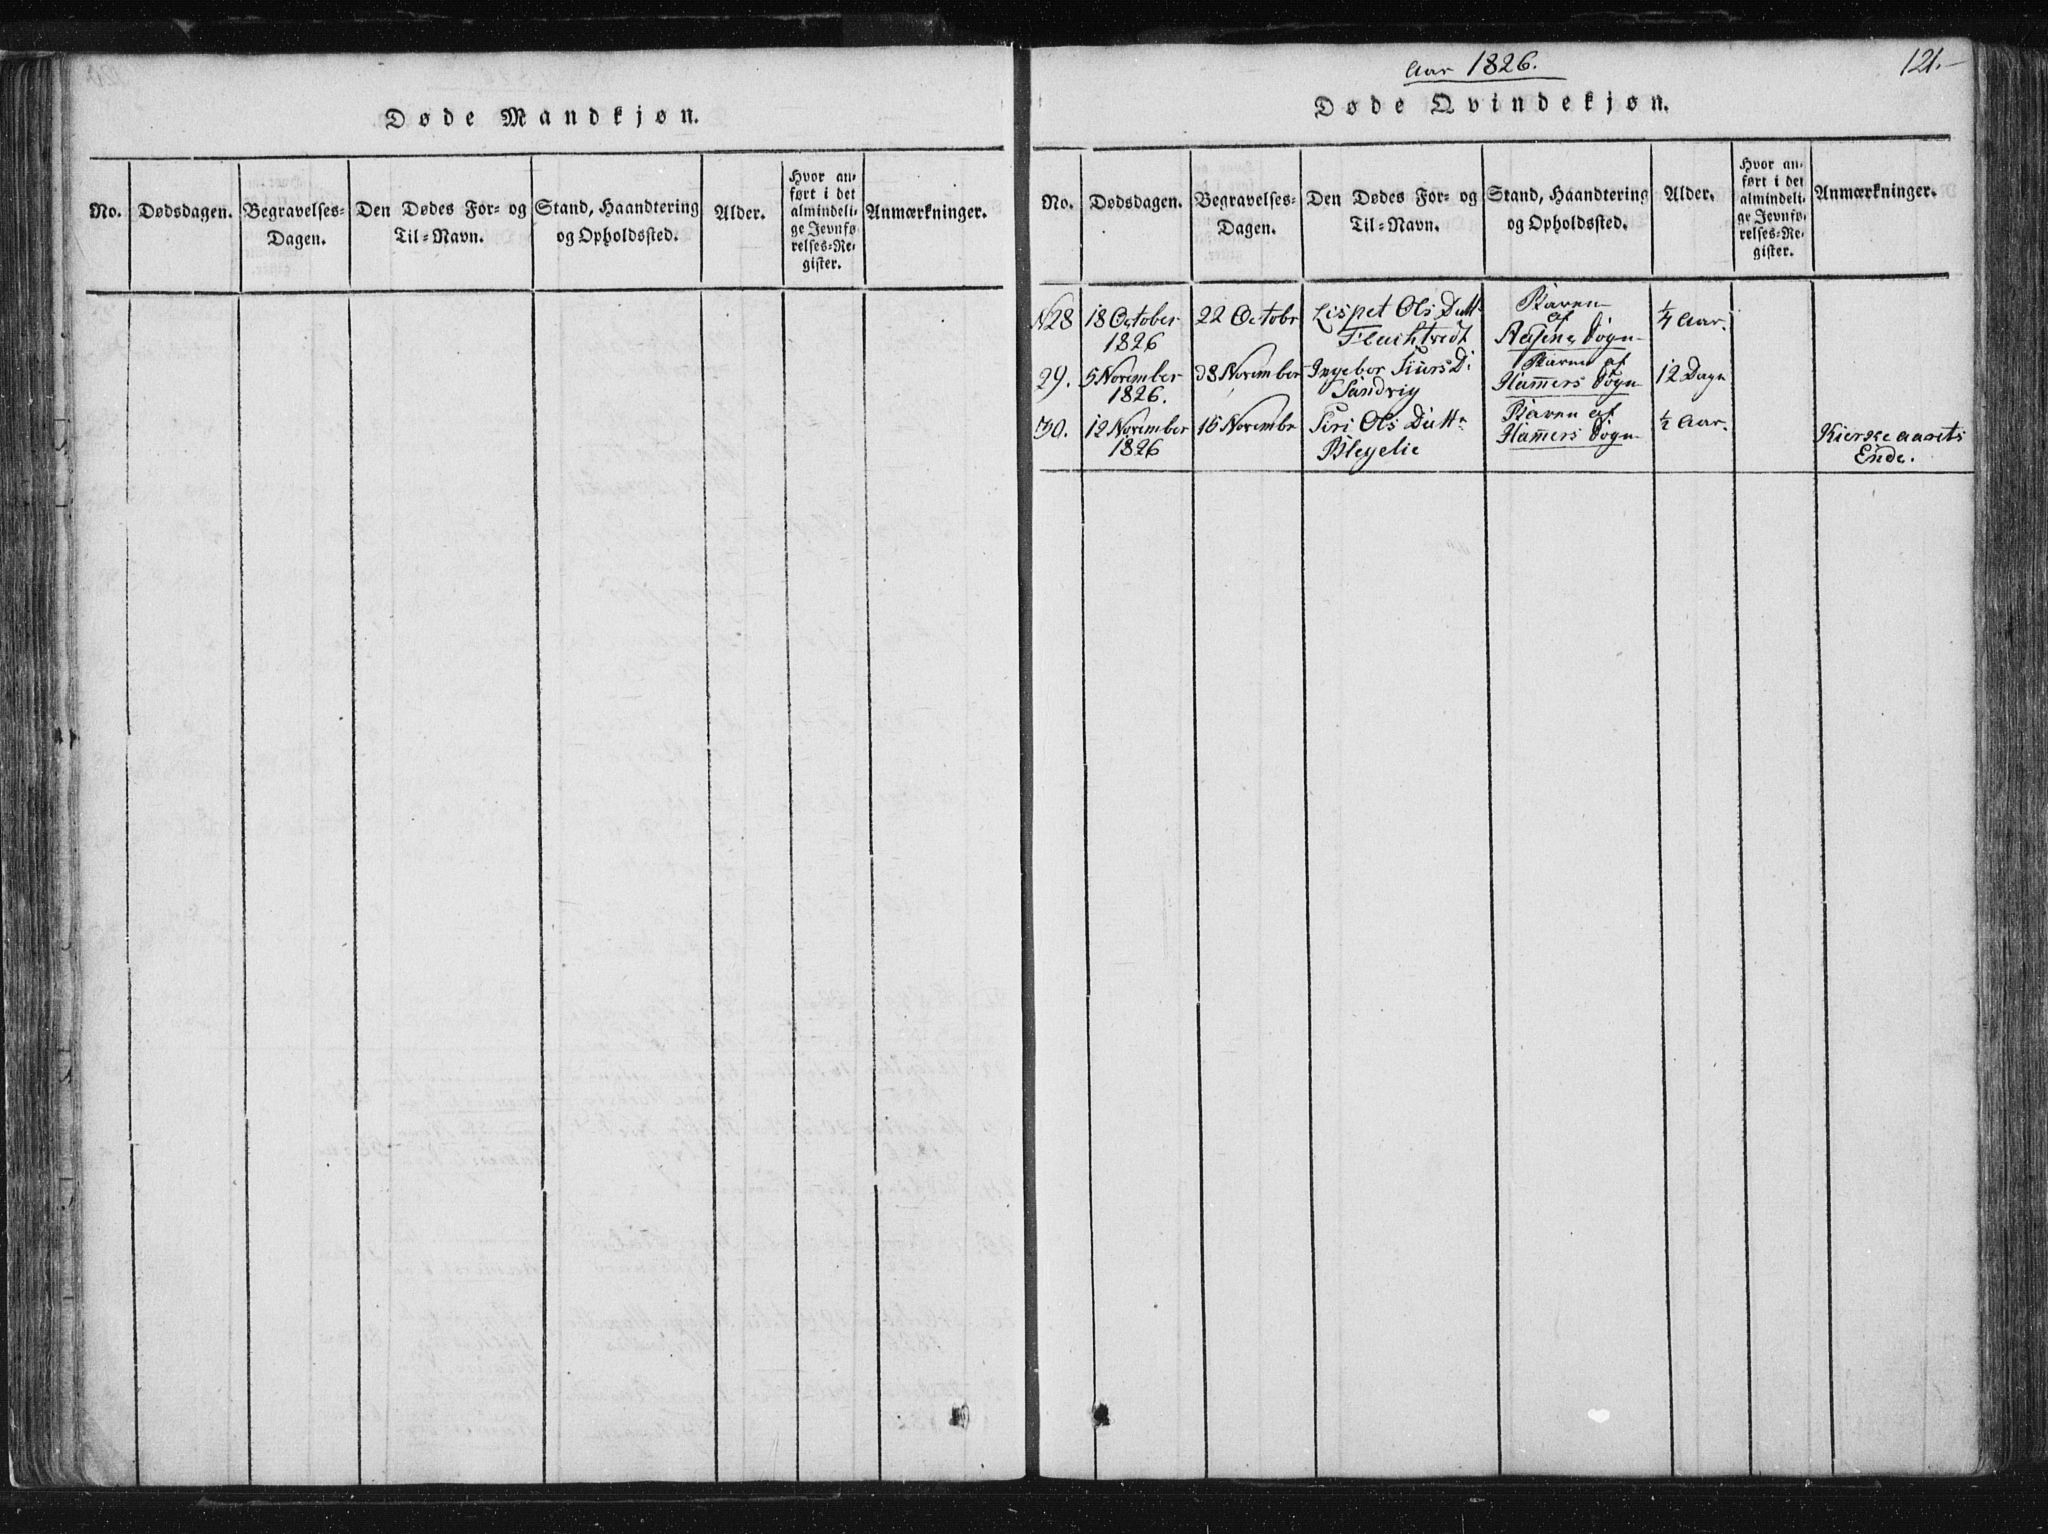 Døde Mandkjøn.
No.
Dødsdagen.
Begravelses-
Dagen.
Den Dødes For- og
Til-Navn.
Stand, Haandtering
og Opholdssted.
Alder.
Hvor an-
ført i det
almindeli-
ge Jevnfø-
relses-Re-
gister.
Anmærkninger.
Aar 1826.
121.
Døde Qvindekjøn.
No.
Dødsdagen.
Begravelses-
Dagen.
Den Dødes For- og
Til-Navn.
Stand, Haandtering
og Opholdssted.
Alder.
Hvor an-
ført i det
almindeli-
ge Jevnfø-
relses-Re-
gister.
Anmærkninger.
N28
18 October
1826
22 Octobr
Lispet Ols Datt
Barn
af
Sogn
1/4 Aar.
29.
5 November
1826.
8 November
Ingebor D:
Sandvig
Barn af
Hamers Sogn
12 Dage
30.
12 November
1826
15 Novembr
Siri Ols Datt
Barn af
Hamers Sogn
1/2 Aar.
Kierke aarets
Ende.